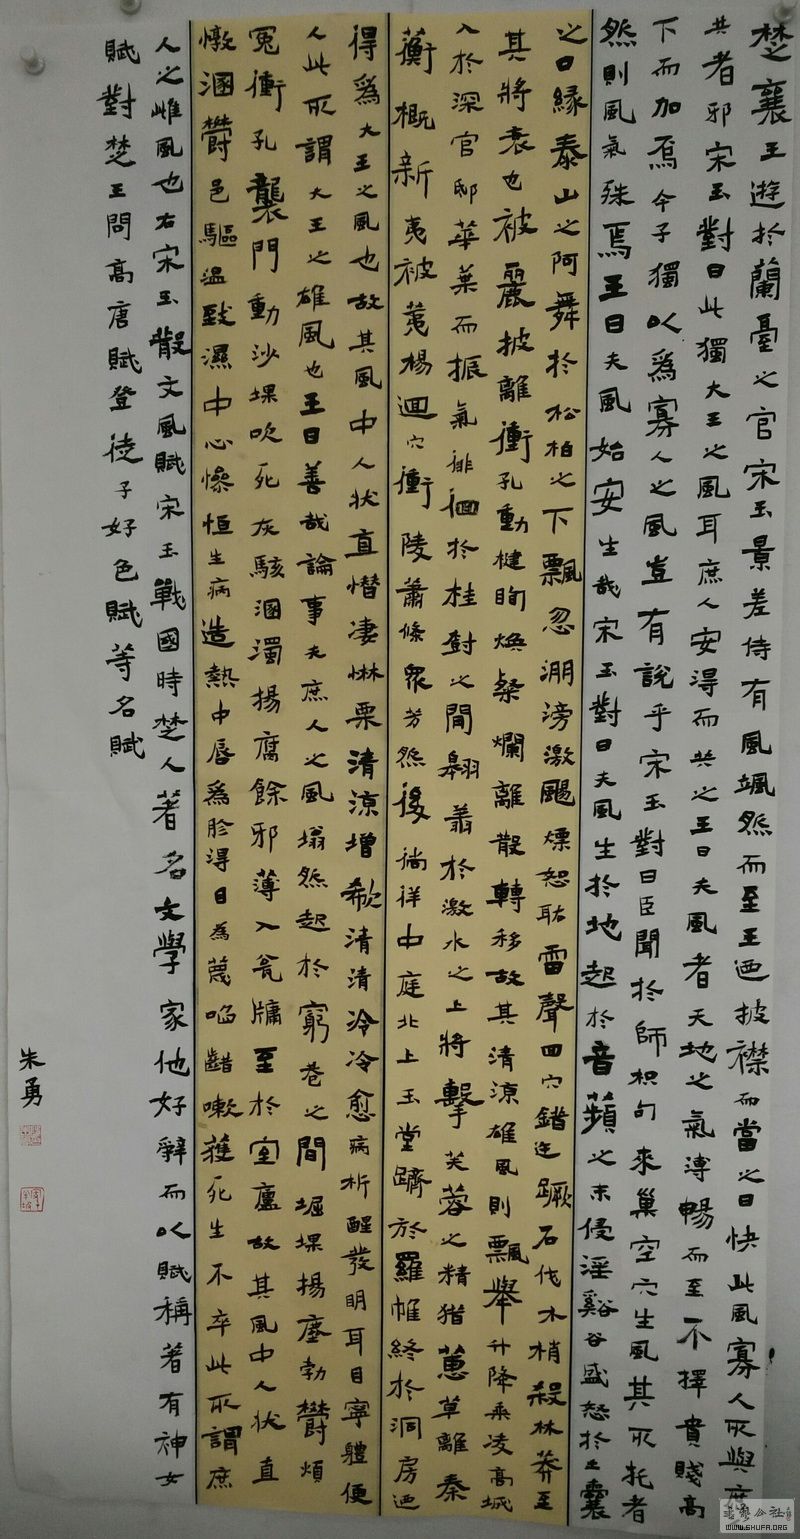 楚襄王遊於蘭臺之官宋玉景差侍有風颯然而至王迺披襟而當之曰快此風寡人所與庶
共者邪宋玉對曰此獨大王之風耳庶人安得而共之王曰夫風者天地之氣溥暢而至不擇貴賤高
下而加焉今子獨以爲寡人之風豈有說乎宋玉對曰臣聞於師枳句來巢空穴生風其所托者
然則風氣殊焉王曰夫風始安生哉宋玉對曰夫風生於地起於音蘋之末侵淫谿谷盛怒於土囊
之口緣泰山之阿舞於松柏之下飄忽淜滂激颺熛怒耾雷聲回穴錯迕蹶石伐木梢殺林莽至
其將衰也被麗披離衝孔動楗眴煥粲爛離散轉移故其清涼雄風則飄舉升降乘凌高城
入於深官邸華葉而振氣徘徊於桂樹之間翱翔於激水之上將擊芙蓉之精獵蕙草離秦
蘅概新夷被荑楊迴穴衝陵蕭條眾芳然後徜徉中庭北上玉堂躋於羅帷終於洞房迺
得爲大王之風也故其風中人狀直憯凄惏栗清涼增欷清清泠泠愈病析酲發明耳目寧體便
人此所謂大王之雄風也王曰善哉論事夫庶人之風塕然起於窮巷之間堀堁揚塵勃鬱煩
冤衝孔襲門動沙堁吹死灰駭溷濁揚腐餘邪薄入瓮牖至於室廬故其風中人狀直
憞溷鬱邑驅溫致濕中心慘怛生病造熱中唇爲胗得目為蔑啗齰嗽獲死生不卒此所謂庶
人之雌風也右宋玉散文風賦宋玉戰國時楚人著名文學家他好辭而以賦稱著有神女
賦對楚王問高唐賦登徒子好色賦等名賦
朱勇
WWW.SHUFA.ORG